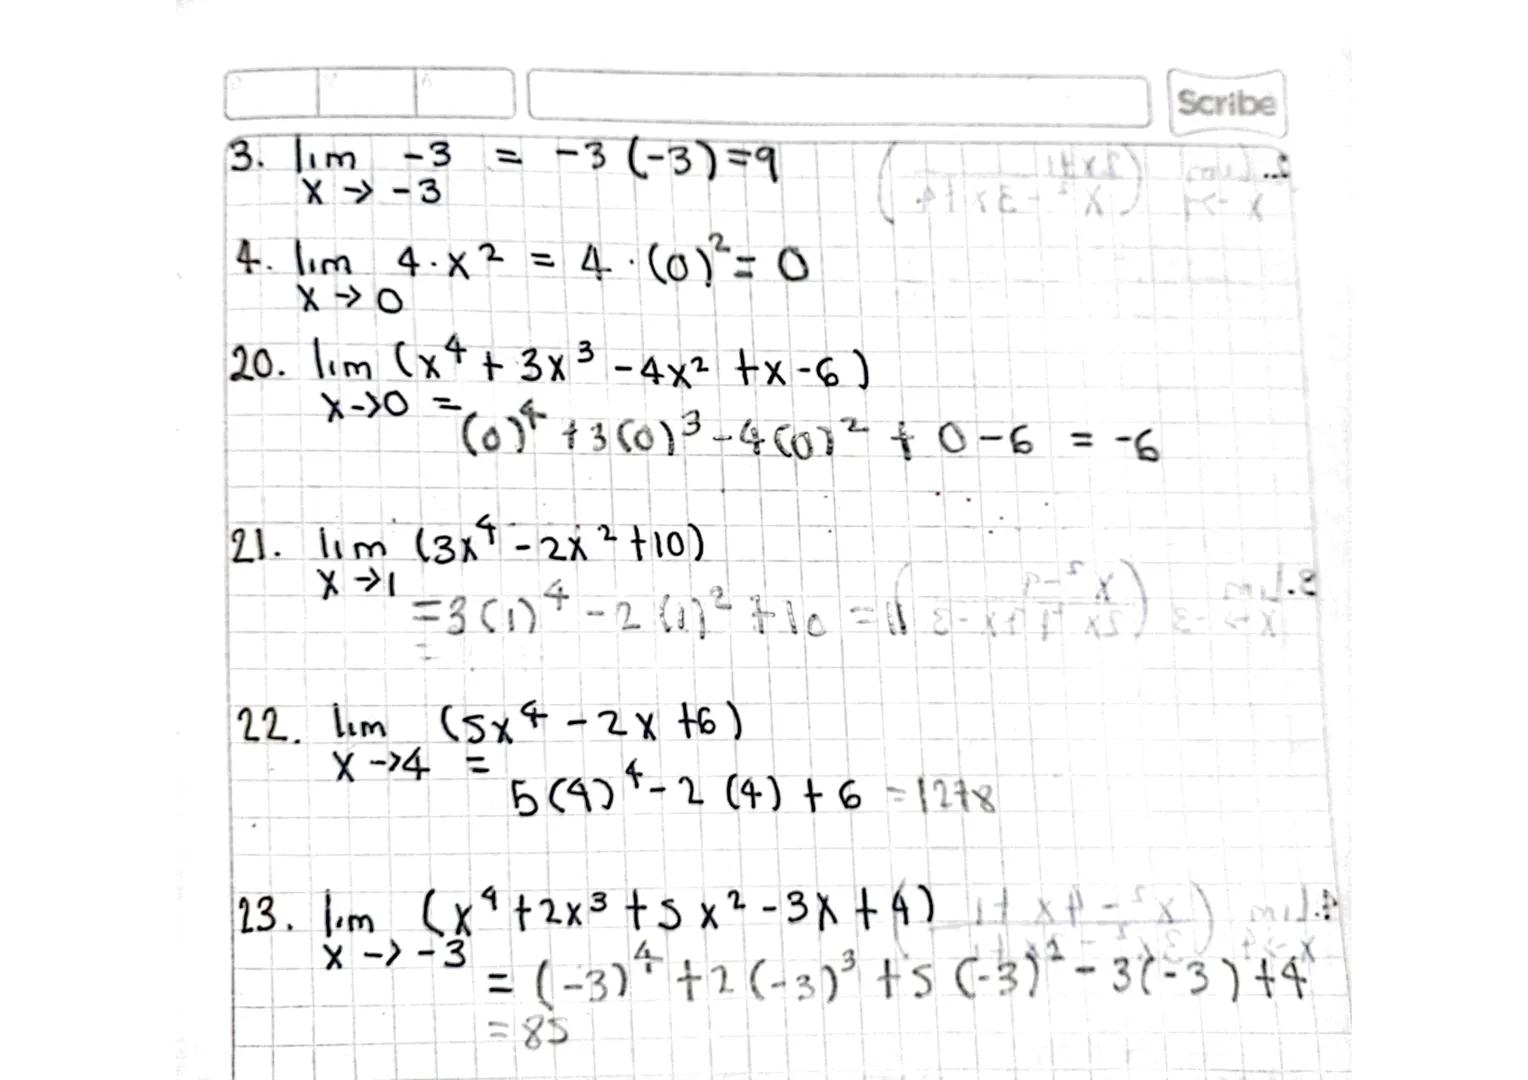 Scribe
3. lim -3 = -3 (-3) = 9
x → -3
4. lim 4·x² = 4·(0)² = 0
x → 0
20. lim (x⁴ + 3x³ - 4x² + x - 6)
x → 0 =
(0)⁴ + 3(0)³ - 4(0)² + 0 - 6 = -6
21. lim (3x⁴ - 2x² + 10)
x → 1
= 3(1)⁴ - 2(1)² + 10 = 11
=
22. lim (5x⁴ - 2x + 6)
x → 4 =
5(4)⁴ - 2(4) + 6 = 1278
23. lim (x⁴ + 2x³ + 5x² - 3x + 4)
x → -3
= (-3)⁴ + 2(-3)³ + 5(-3)² - 3(-3) + 4
= 85